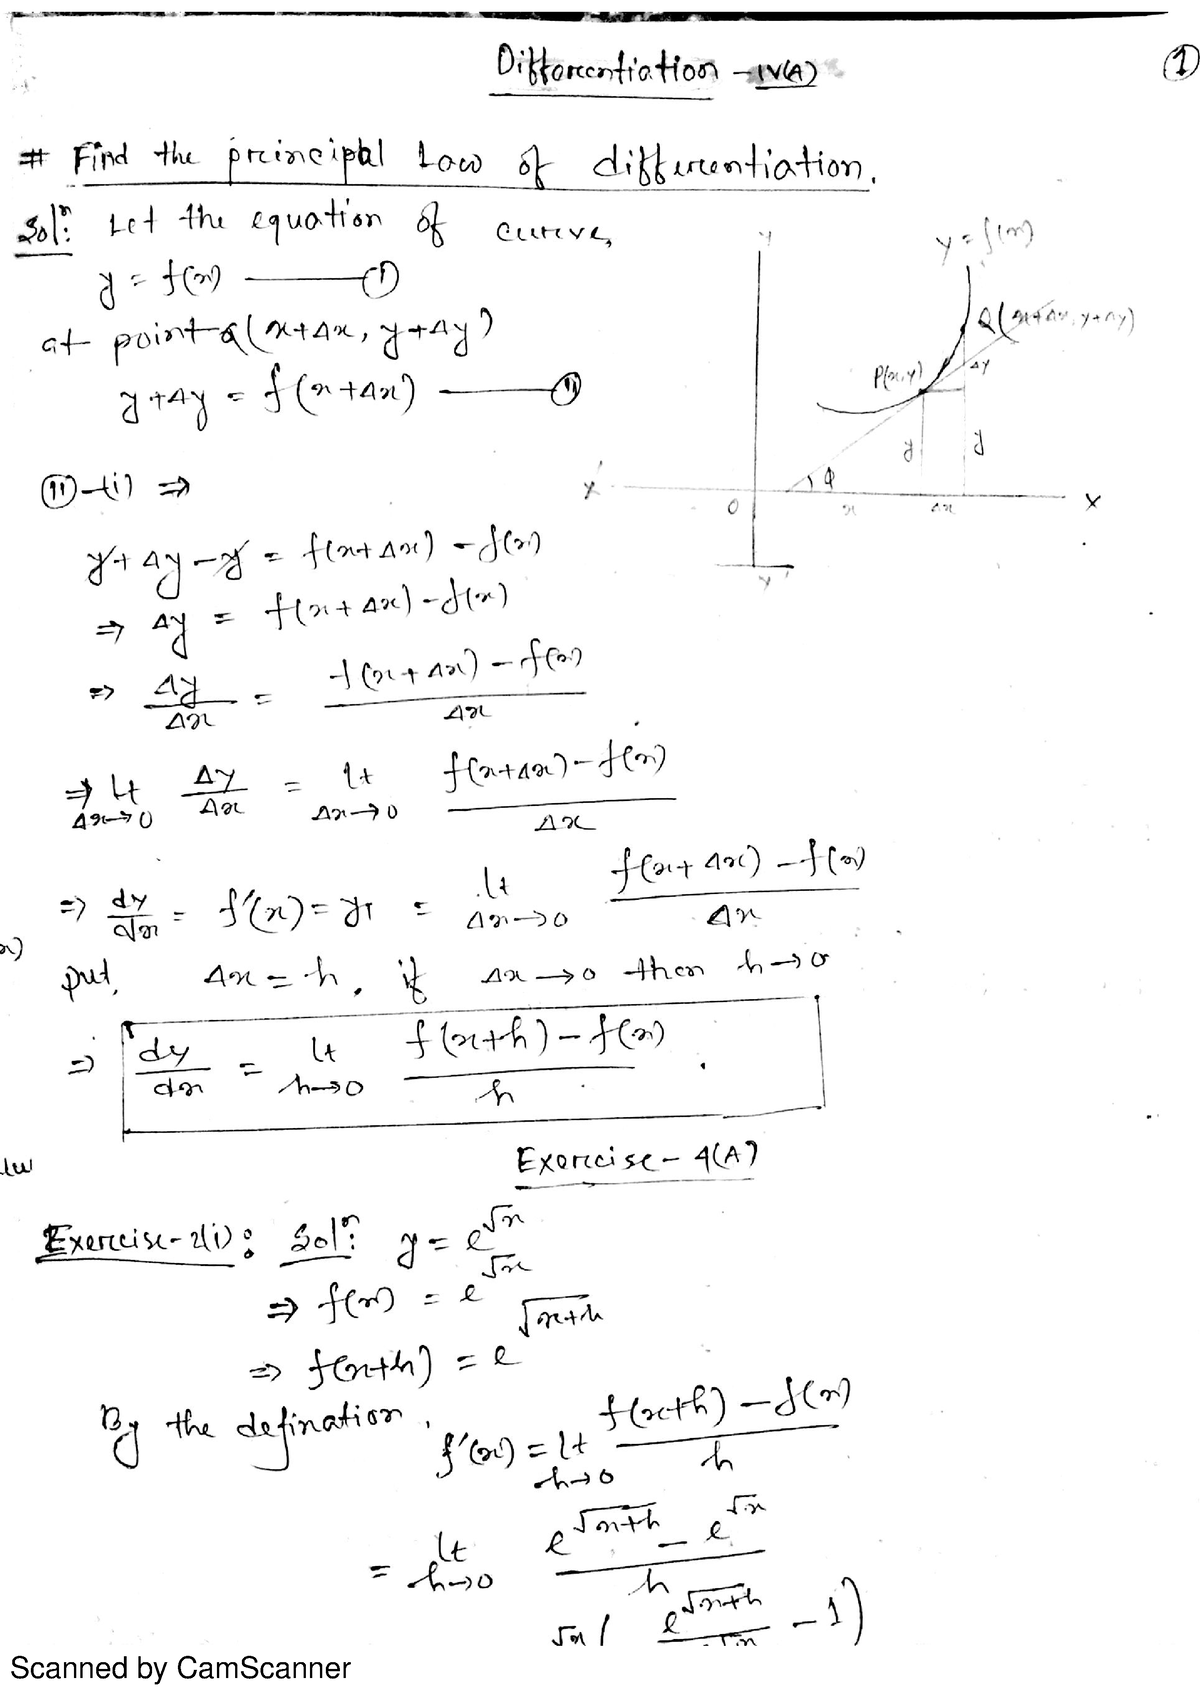 Differentiation - IV(A)
①
# Find the principal Law of differentiation.
Solⁿ: Let the equation of curve,
y = f(x) ——— ①
at point Q(x+Δx, y+Δy)
y+Δy = f(x+Δx) ——— ⑪
⑪-(i) ⇒
y+Δy-y = f(x+Δx) - f(x)
⇒ Δy = f(x+Δx) - f(x)
⇒ Δy/Δx = (f(x+Δx) - f(x))/Δx
⇒ Lt Δx→0 Δy/Δx = lt Δx→0 (f(x+Δx) - f(x))/Δx
⇒ dy/dx = f'(x) = y₁ = lt Δx→0 (f(x+Δx) - f(x))/Δx
put, Δx = h, if Δx→0 then h→0
⇒ dy/dx = lt h→0 (f(x+h) - f(x))/h
Y
y = f(x)
Q(x+Δx, y+Δy)
P(x,y)
Δy
y
y
X'
φ
O
x
Δx
X
Y'
Exercise - 4(A)
Exercise-2(i): Solⁿ: y = e^√x
⇒ f(x) = e^√x
⇒ f(x+h) = e^√(x+h)
By the defination, f'(x) = lt h→0 (f(x+h) - f(x))/h
= lt h→0 (e^√(x+h) - e^√x)/h
√x ( e^√(x+h)/√x - 1)
Scanned by CamScanner